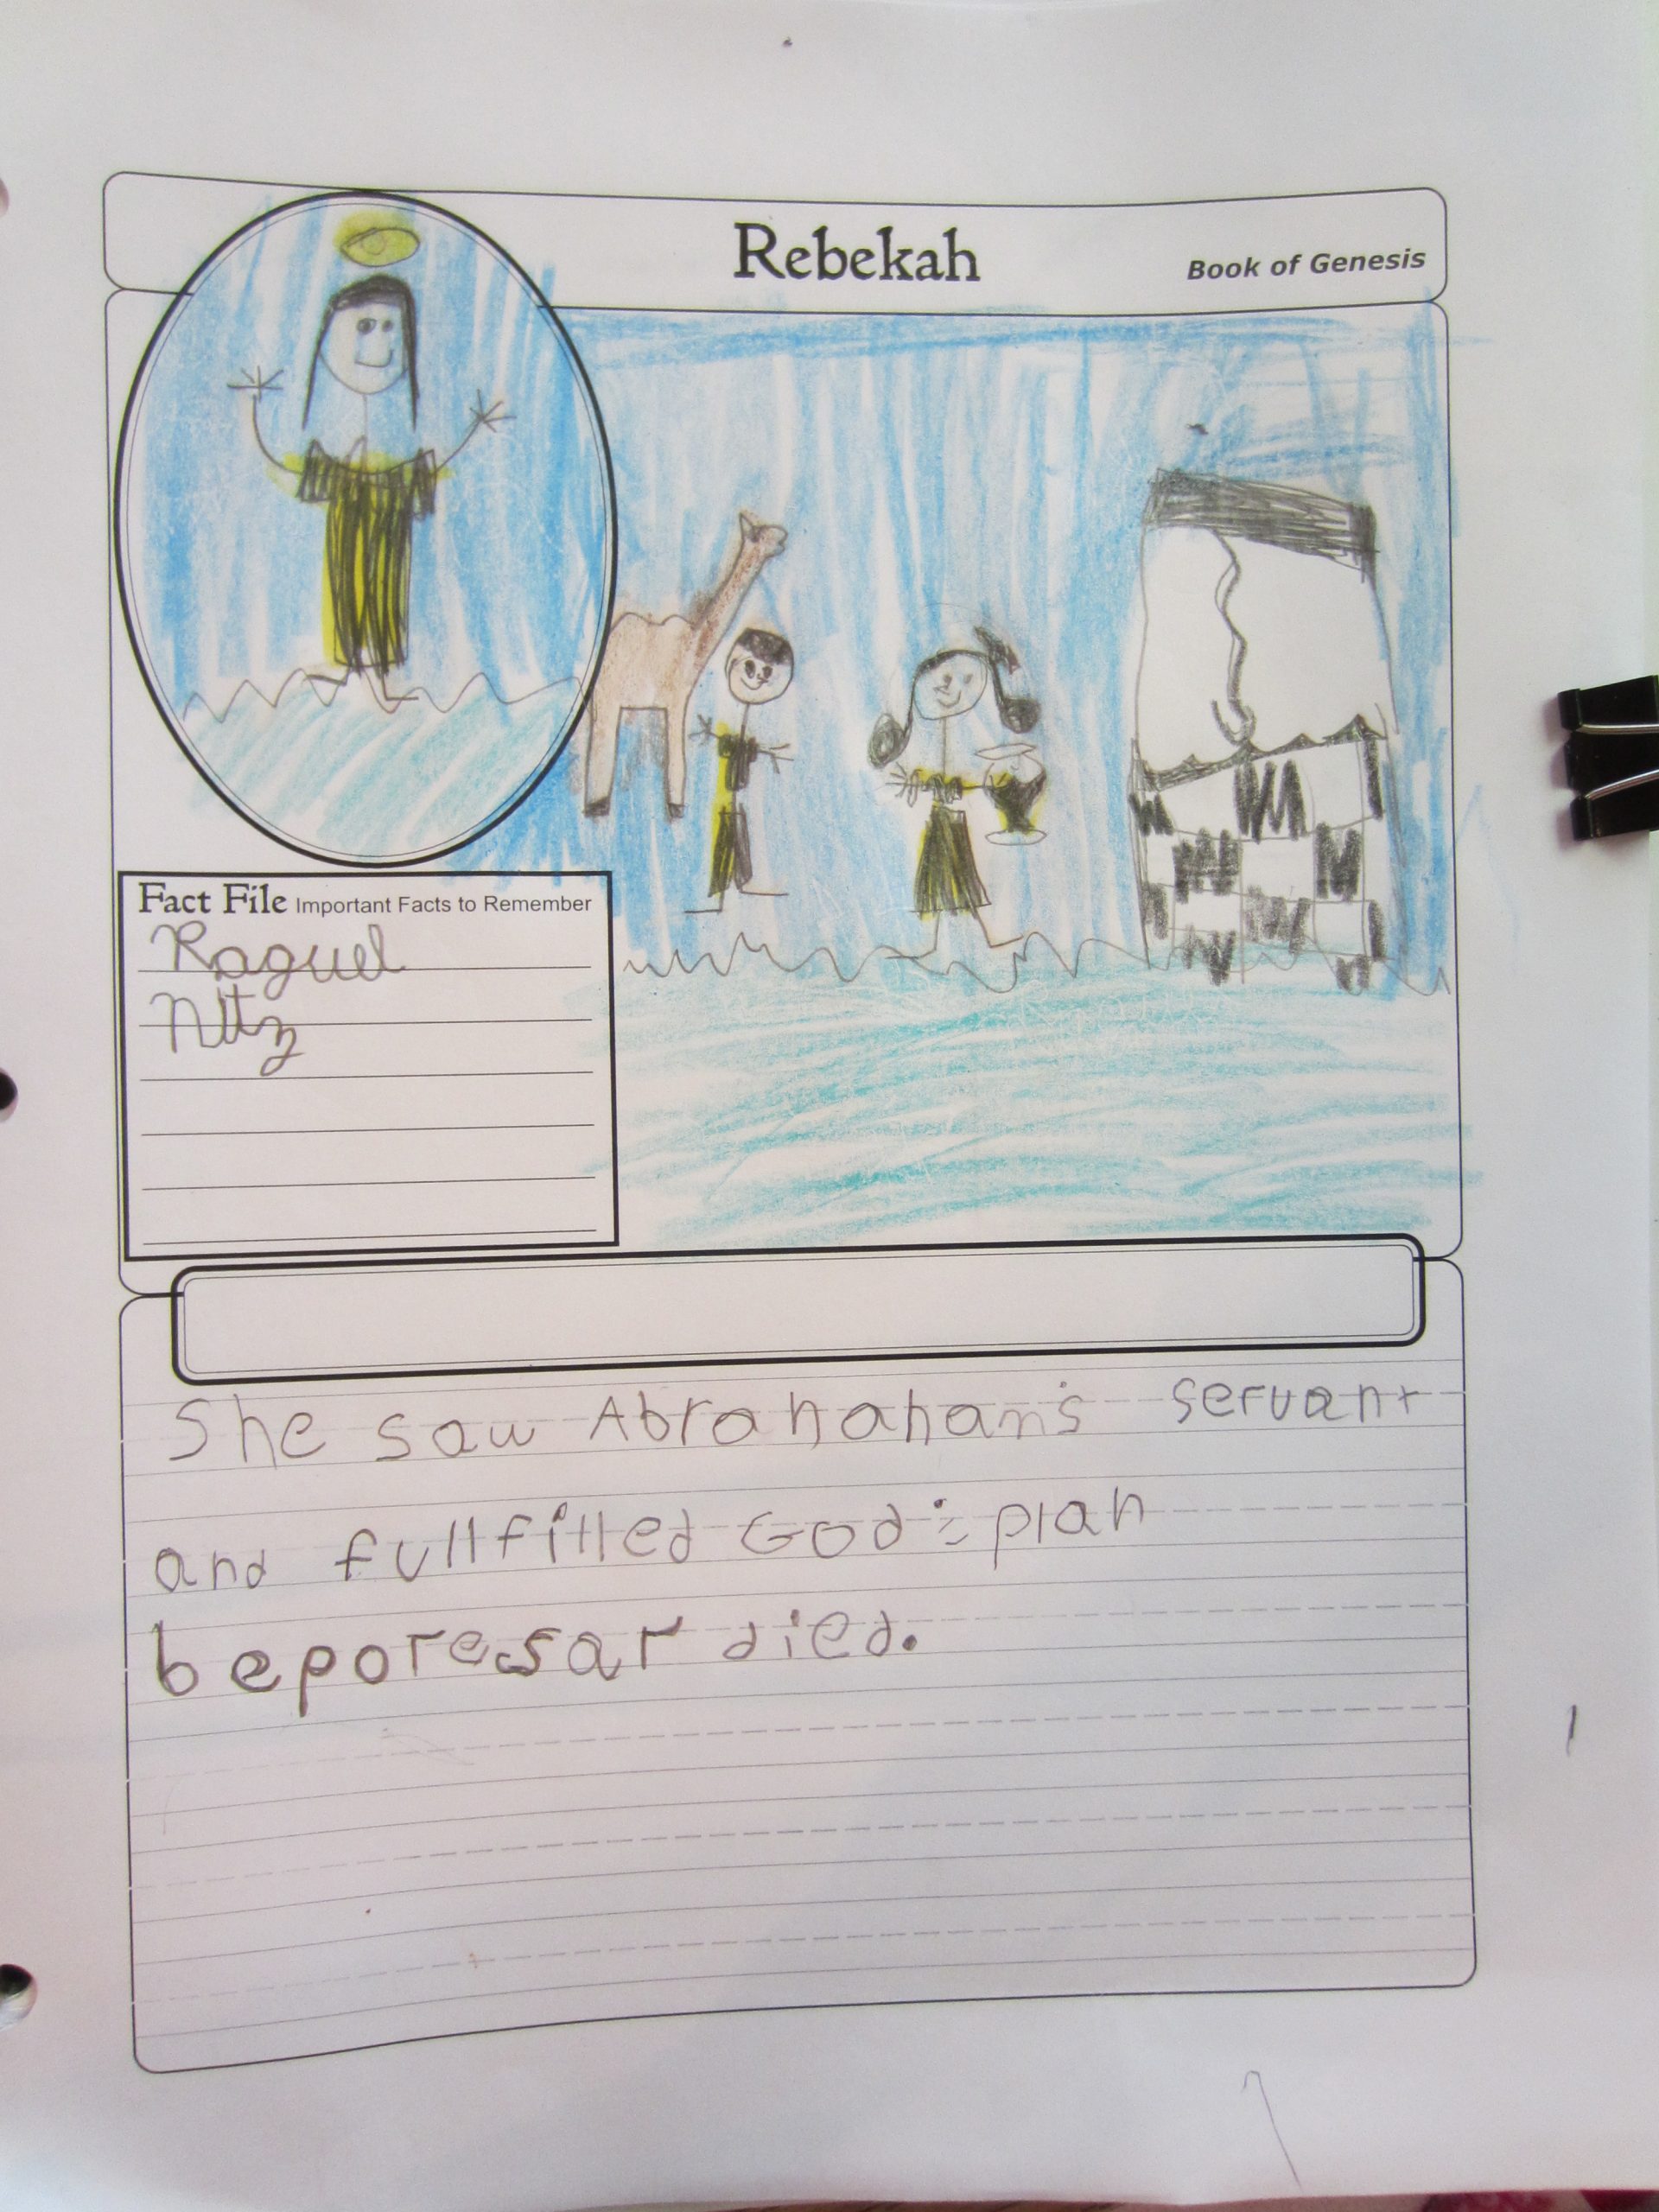 Rebekah
Book of Genesis
Fact File Important Facts to Remember
Raquel
She saw Abrahaham's servant
and fullfilled God's plan
bepore sar died.